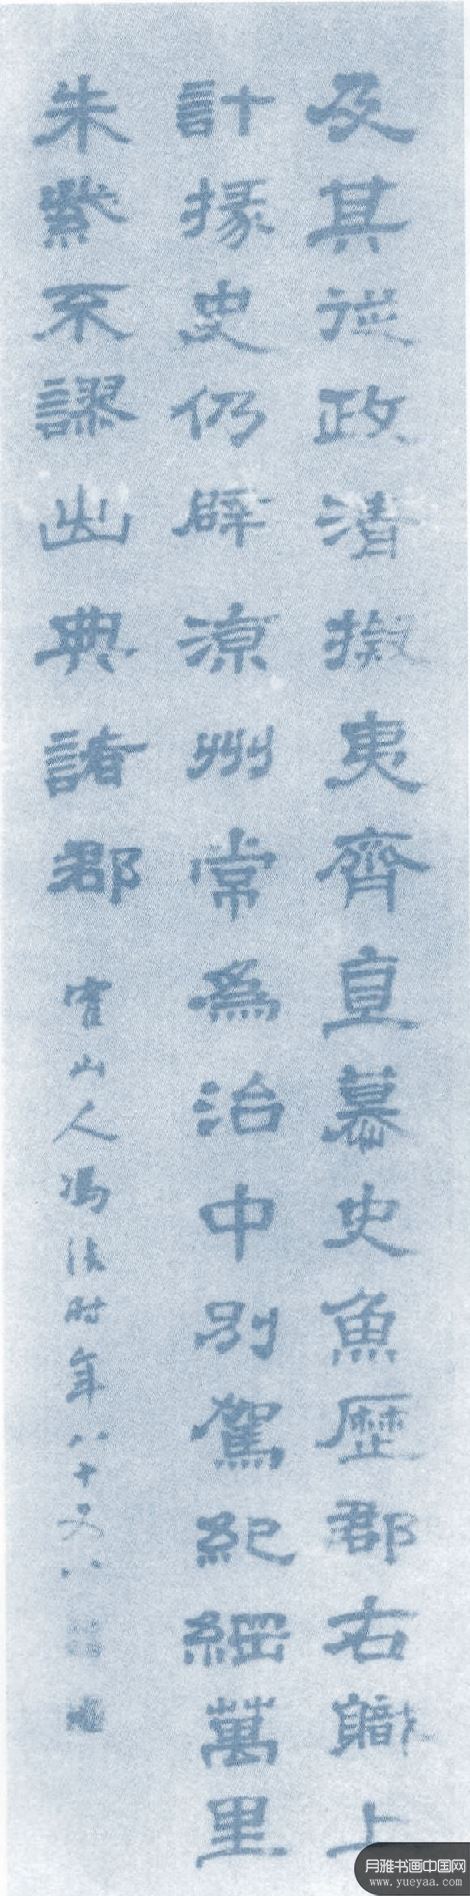 及其從政清擬夷齊直慕史魚歷郡右職上
計掾史仍辟涼州常為治中別駕紀綱萬里
朱紫不謬出典諸郡
山人冯时年八十又八
月雅书画中国网
www.yueyaa.com